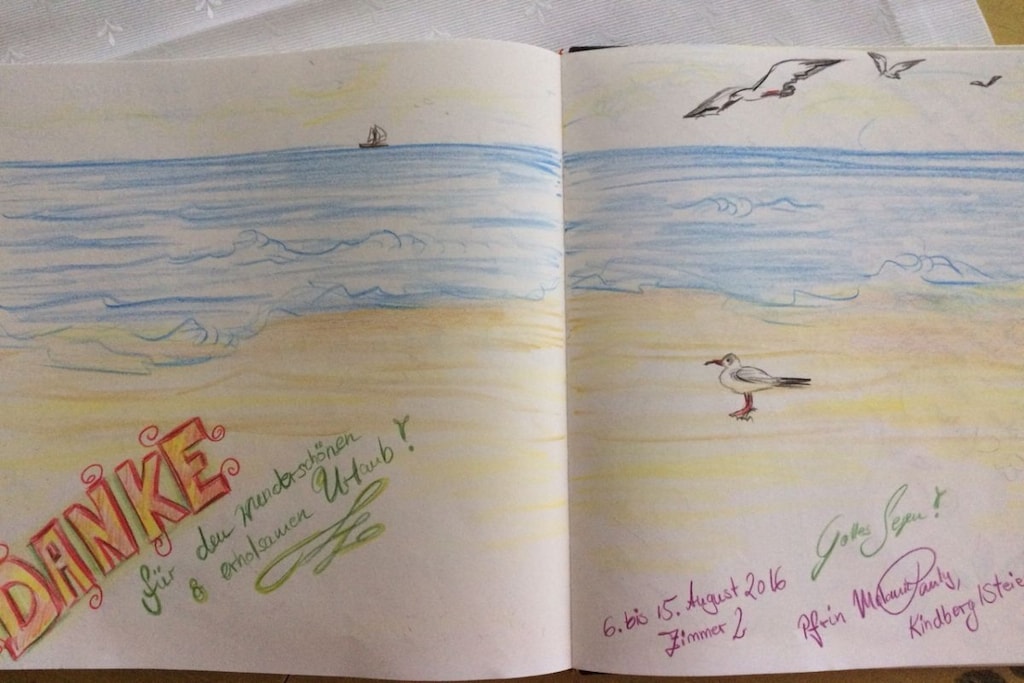 DANKE
für den wunderschönen
& erholsamen Urlaub!
Gottes Segen!
6. bis 15. August 2016
Zimmer 2
Pfrin Melanie Pauly,
Kindberg/Steie